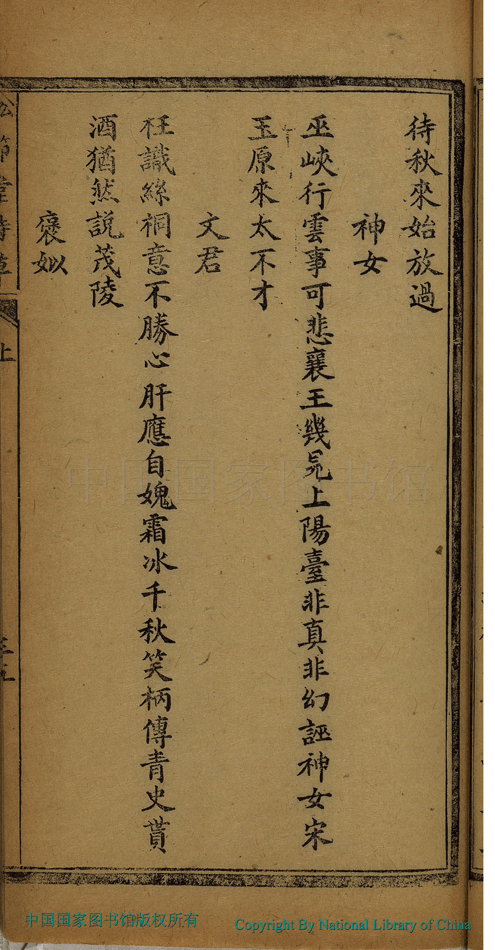 待秋來始放過
神女
巫峽行雲事可悲襄王幾見上陽臺非真非幻誣神女宋
玉原來太不才
文君
枉識絲桐意不勝心肝應自媿霜冰千秋笑柄傳青史貰
酒猶然說茂陵
褒姒
上
中国国家图书馆
中国国家图书馆版权所有
Copyright By National Library of China